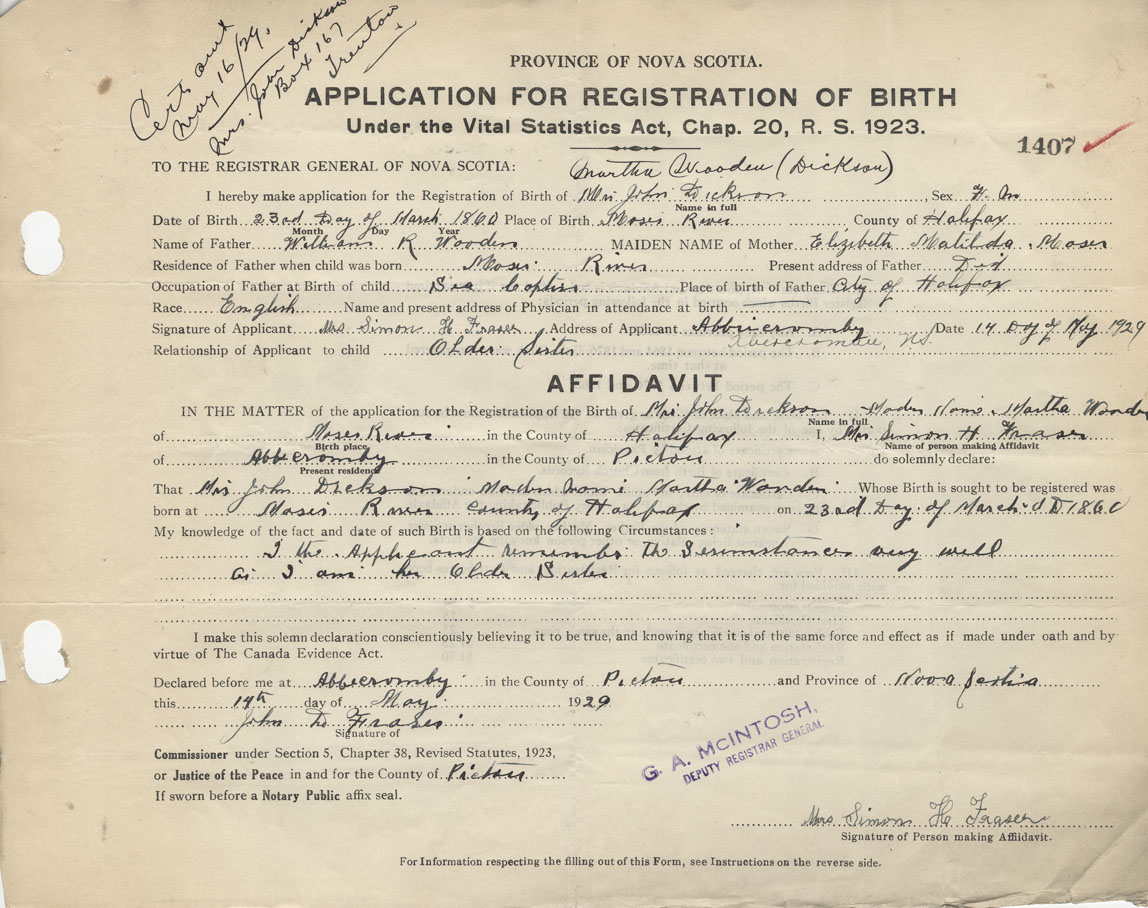 Cert out
May 16/29.
Mrs. John Dickson
Box 167
Trenton
PROVINCE OF NOVA SCOTIA.
APPLICATION FOR REGISTRATION OF BIRTH
Under the Vital Statistics Act, Chap. 20, R. S. 1923.
1407
TO THE REGISTRAR GENERAL OF NOVA SCOTIA: Martha Wooden (Dickson)
I hereby make application for the Registration of Birth of Mrs John Dickson Sex F.
Name in full
Date of Birth 23rd Day of March 1860 Place of Birth Moses River County of Halifax
Month Day Year
Name of Father William R Wooden MAIDEN NAME of Mother Elizibeth Matilda Moser
Residence of Father when child was born Moses River Present address of Father Ded
Occupation of Father at Birth of child Sea Capten Place of birth of Father City of Halifax
Race English Name and present address of Physician in attendance at birth
Signature of Applicant Mrs. Simon H Fraser Address of Applicant Abbiecromby Date 14 Day of May 1929
Abercrombie, NS.
Relationship of Applicant to child Older Sister
AFFIDAVIT
IN THE MATTER of the application for the Registration of the Birth of Mrs John Dickson Maden Name Martha Wooden
Name in full
of Moses River in the County of Halifax I, Mrs Simon H. Fraser
Birth place Name of person making Affidavit
of Abbecromby in the County of Pictou do solemnly declare:
Present residence
That Mrs. John Dickson Maden Name Martha Wooden Whose Birth is sought to be registered was
born at Moses River County of Halifax on 23rd Day of March A D 1860
My knowledge of the fact and date of such Birth is based on the following Circumstances :
I the Applicant remember the Sircumstances very well
As I am her Older Sister
I make this solemn declaration conscientiously believing it to be true, and knowing that it is of the same force and effect as if made under oath and by
virtue of The Canada Evidence Act.
Declared before me at Abbiecromby in the County of Pictou and Province of Nova Scotia
this 14th day of May 1929
John D Fraser
Signature of
Commissioner under Section 5, Chapter 38, Revised Statutes, 1923,
or Justice of the Peace in and for the County of Pictou
If sworn before a Notary Public affix seal.
G. A. McINTOSH,
DEPUTY REGISTRAR GENERAL
Mrs Simon H Fraser
Signature of Person making Affidavit.
For Information respecting the filling out of this Form, see Instructions on the reverse side.